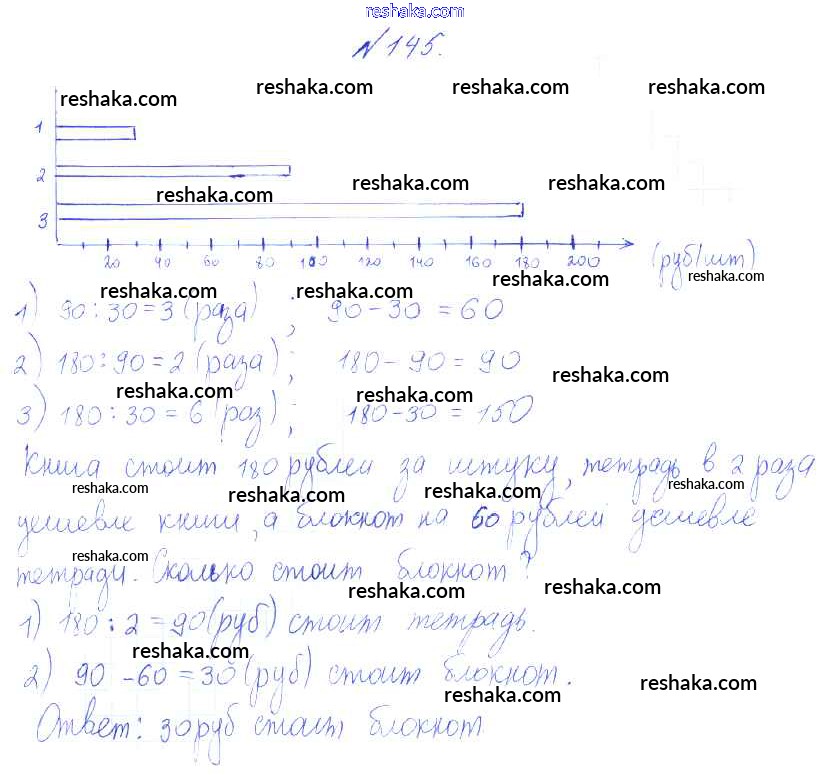 reshaka.com
№145.
reshaka.com reshaka.com reshaka.com reshaka.com
1
2
reshaka.com reshaka.com reshaka.com
3
20 40 60 80 100 120 140 160 180 200 (руб/шт)
reshaka.com reshaka.com reshaka.com reshaka.com
1) 90:30=3 (раза) ; 90-30=60
2) 180:90=2 (раза); 180-90=90
reshaka.com reshaka.com reshaka.com
3) 180:30=6 (раз); 180-30=150
Книга стоит 180 рублей за штуку, тетрадь в 2 раза
reshaka.com reshaka.com reshaka.com reshaka.com
дешевле книги, а блокнот на 60 рублей дешевле
reshaka.com
тетради. Сколько стоит блокнот?
reshaka.com reshaka.com
1) 180:2=90(руб) стоит тетрадь.
reshaka.com
2) 90-60=30(руб) стоит блокнот.
reshaka.com reshaka.com
Ответ: 30 руб стоит блокнот.